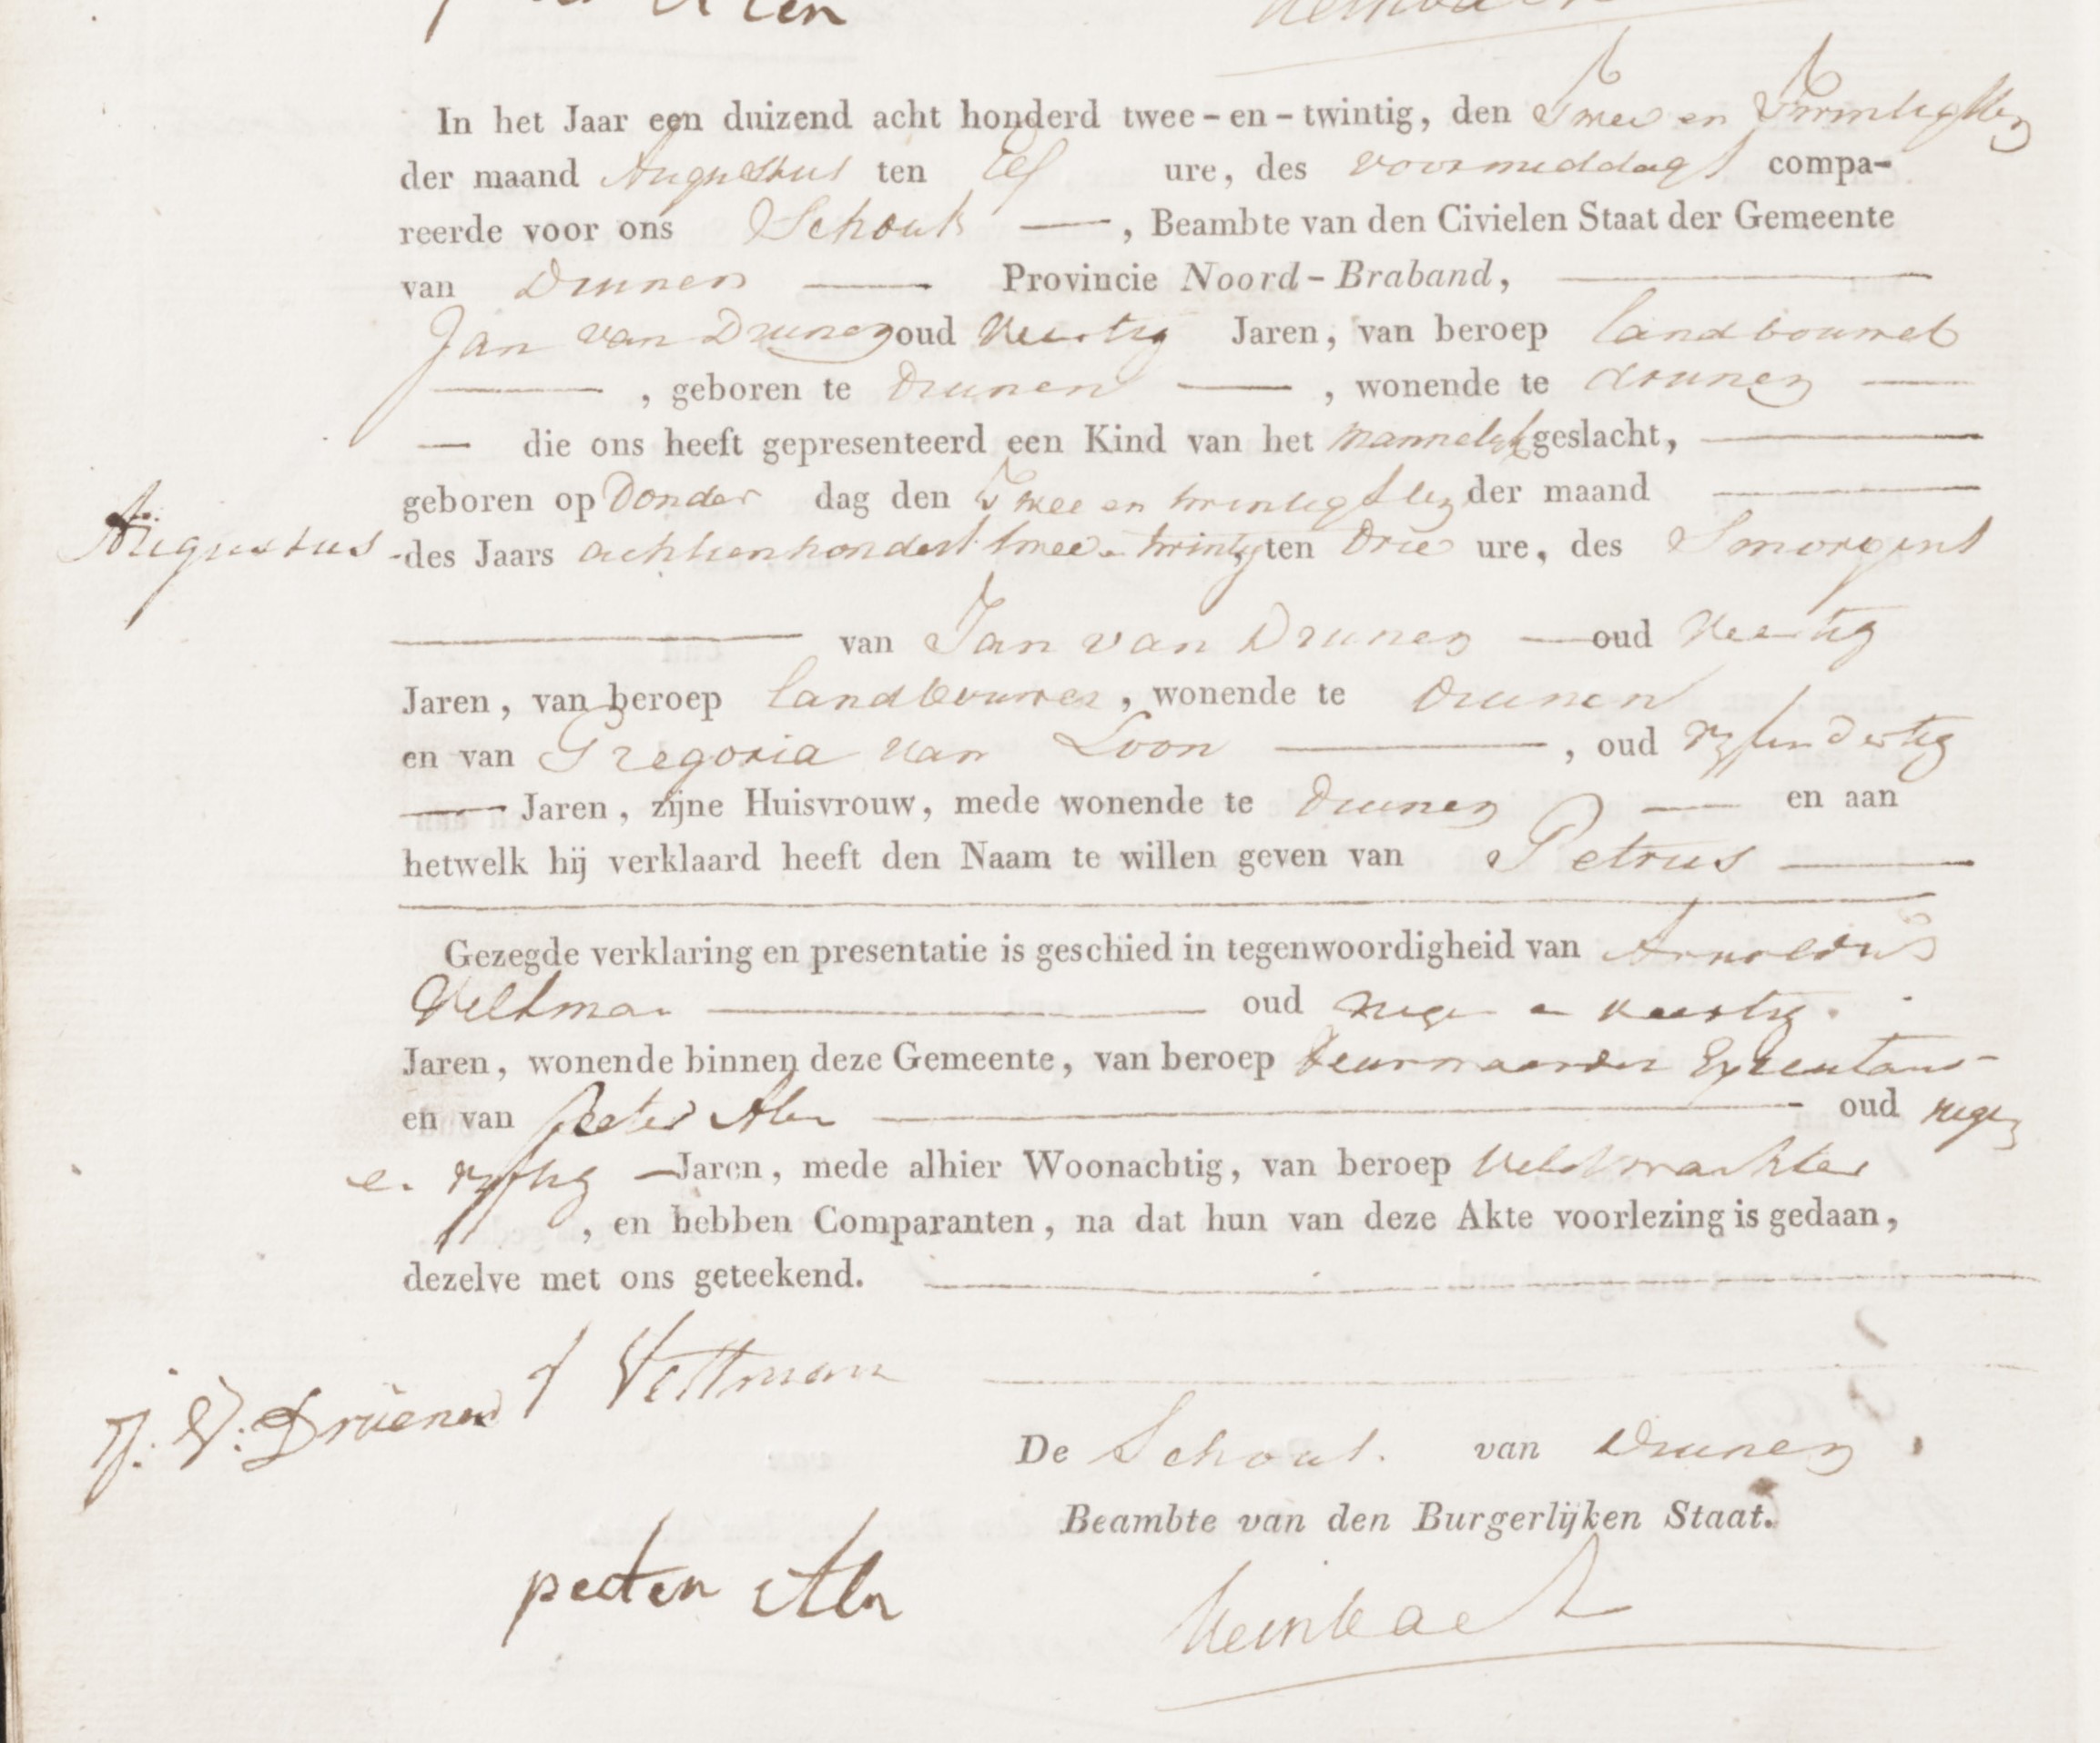 In het Jaar een duizend acht honderd twee-en-twintig, den Twee en Twintigsten
der maand Augustus ten Elf ure, des voormiddags compa-
reerde voor ons Schout —, Beambte van den Civielen Staat der Gemeente
van Drunen — Provincie Noord-Braband, —
Jan van Drunen oud Veertig Jaren, van beroep landbouwer
—, geboren te Drunen —, wonende te drunen —
— die ons heeft gepresenteerd een Kind van het mannelyk geslacht, —
geboren op Donder dag den Twee en twintigsten der maand —
Augustus - des Jaars achtienhondert twee en twintig ten Drie ure, des Smorgens
— van Jan van Drunen — oud Veertig
Jaren, van beroep landbouwer, wonende te Drunen
en van Gregoria van Loon —, oud vyfendertig
— Jaren, zijne Huisvrouw, mede wonende te Drunen — en aan
hetwelk hij verklaard heeft den Naam te willen geven van Petrus —
Gezegde verklaring en presentatie is geschied in tegenwoordigheid van Arnoldus
Veltman — oud negen en veertig.
Jaren, wonende binnen deze Gemeente, van beroep deurwaarder
en van Peeter — oud negen
en vyftig — Jaren, mede alhier Woonachtig, van beroep Veldwachter
, en hebben Comparanten, na dat hun van deze Akte voorlezing is gedaan,
dezelve met ons geteekend. —
J: V: Drüenen
Veltman
De Schout. van Drunen
Beambte van den Burgerlijken Staat.
peeter